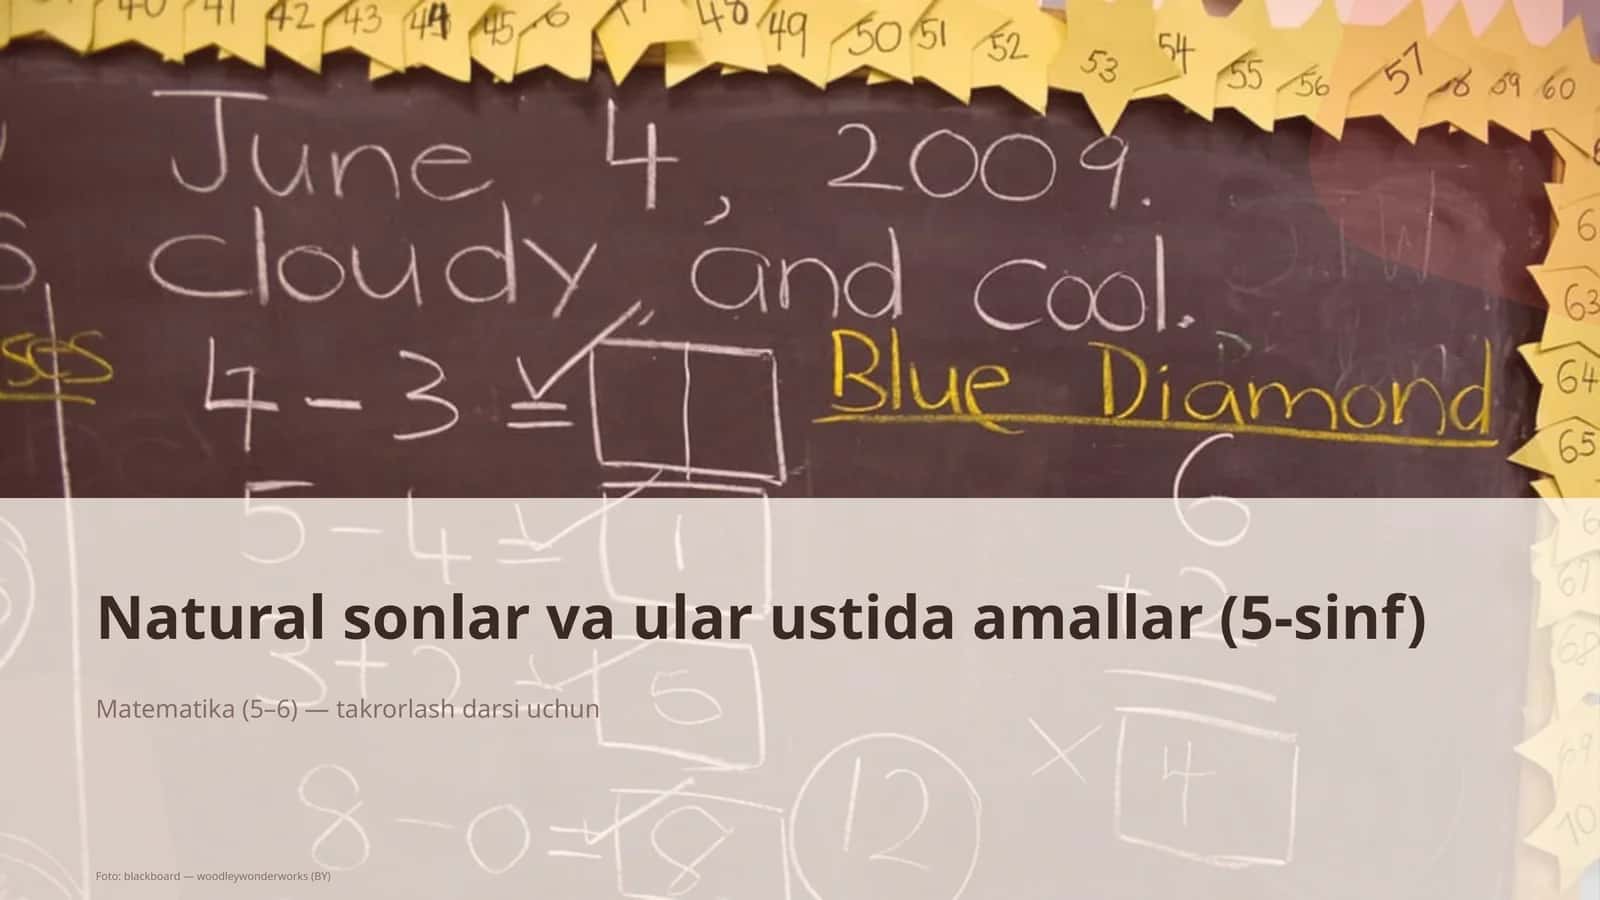 40 41 42 43 44 45 48 49 50 51 52 53 54 55 56 57 58 59 60
June 4, 2009.
cloudy, and cool.
63
4 - 3 =
Blue Diamond
64
65
6
5 - 4 = 1
67
+ 2
Natural sonlar va ular ustida amallar (5-sinf)
68
5
Matematika (5–6) — takrorlash darsi uchun
69
4
12
8 - 0 = 8
70
Foto: blackboard — woodleywonderworks (BY)